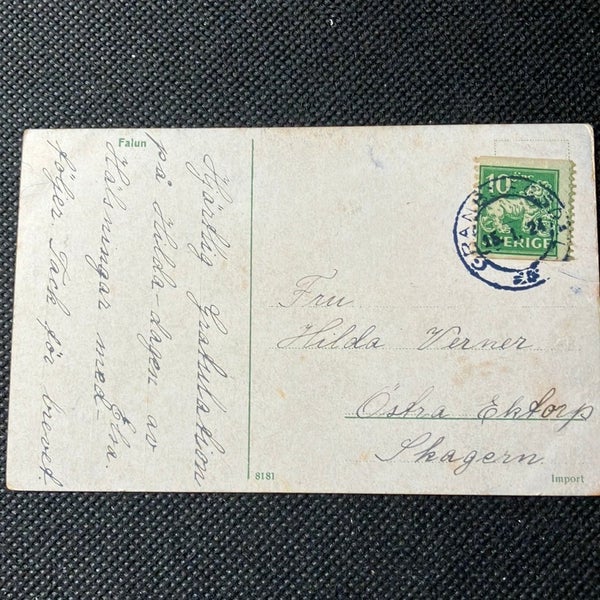 Falun
Hjärtlig Gratulation
på Hilda-dagen av
Elsa.
Hälsningar med-
följer. Tack för brevet.
10 ÖRE 10
SVERIGE
Fru
Hilda Verner
Östra Ektorp
Skagern
8181
Import